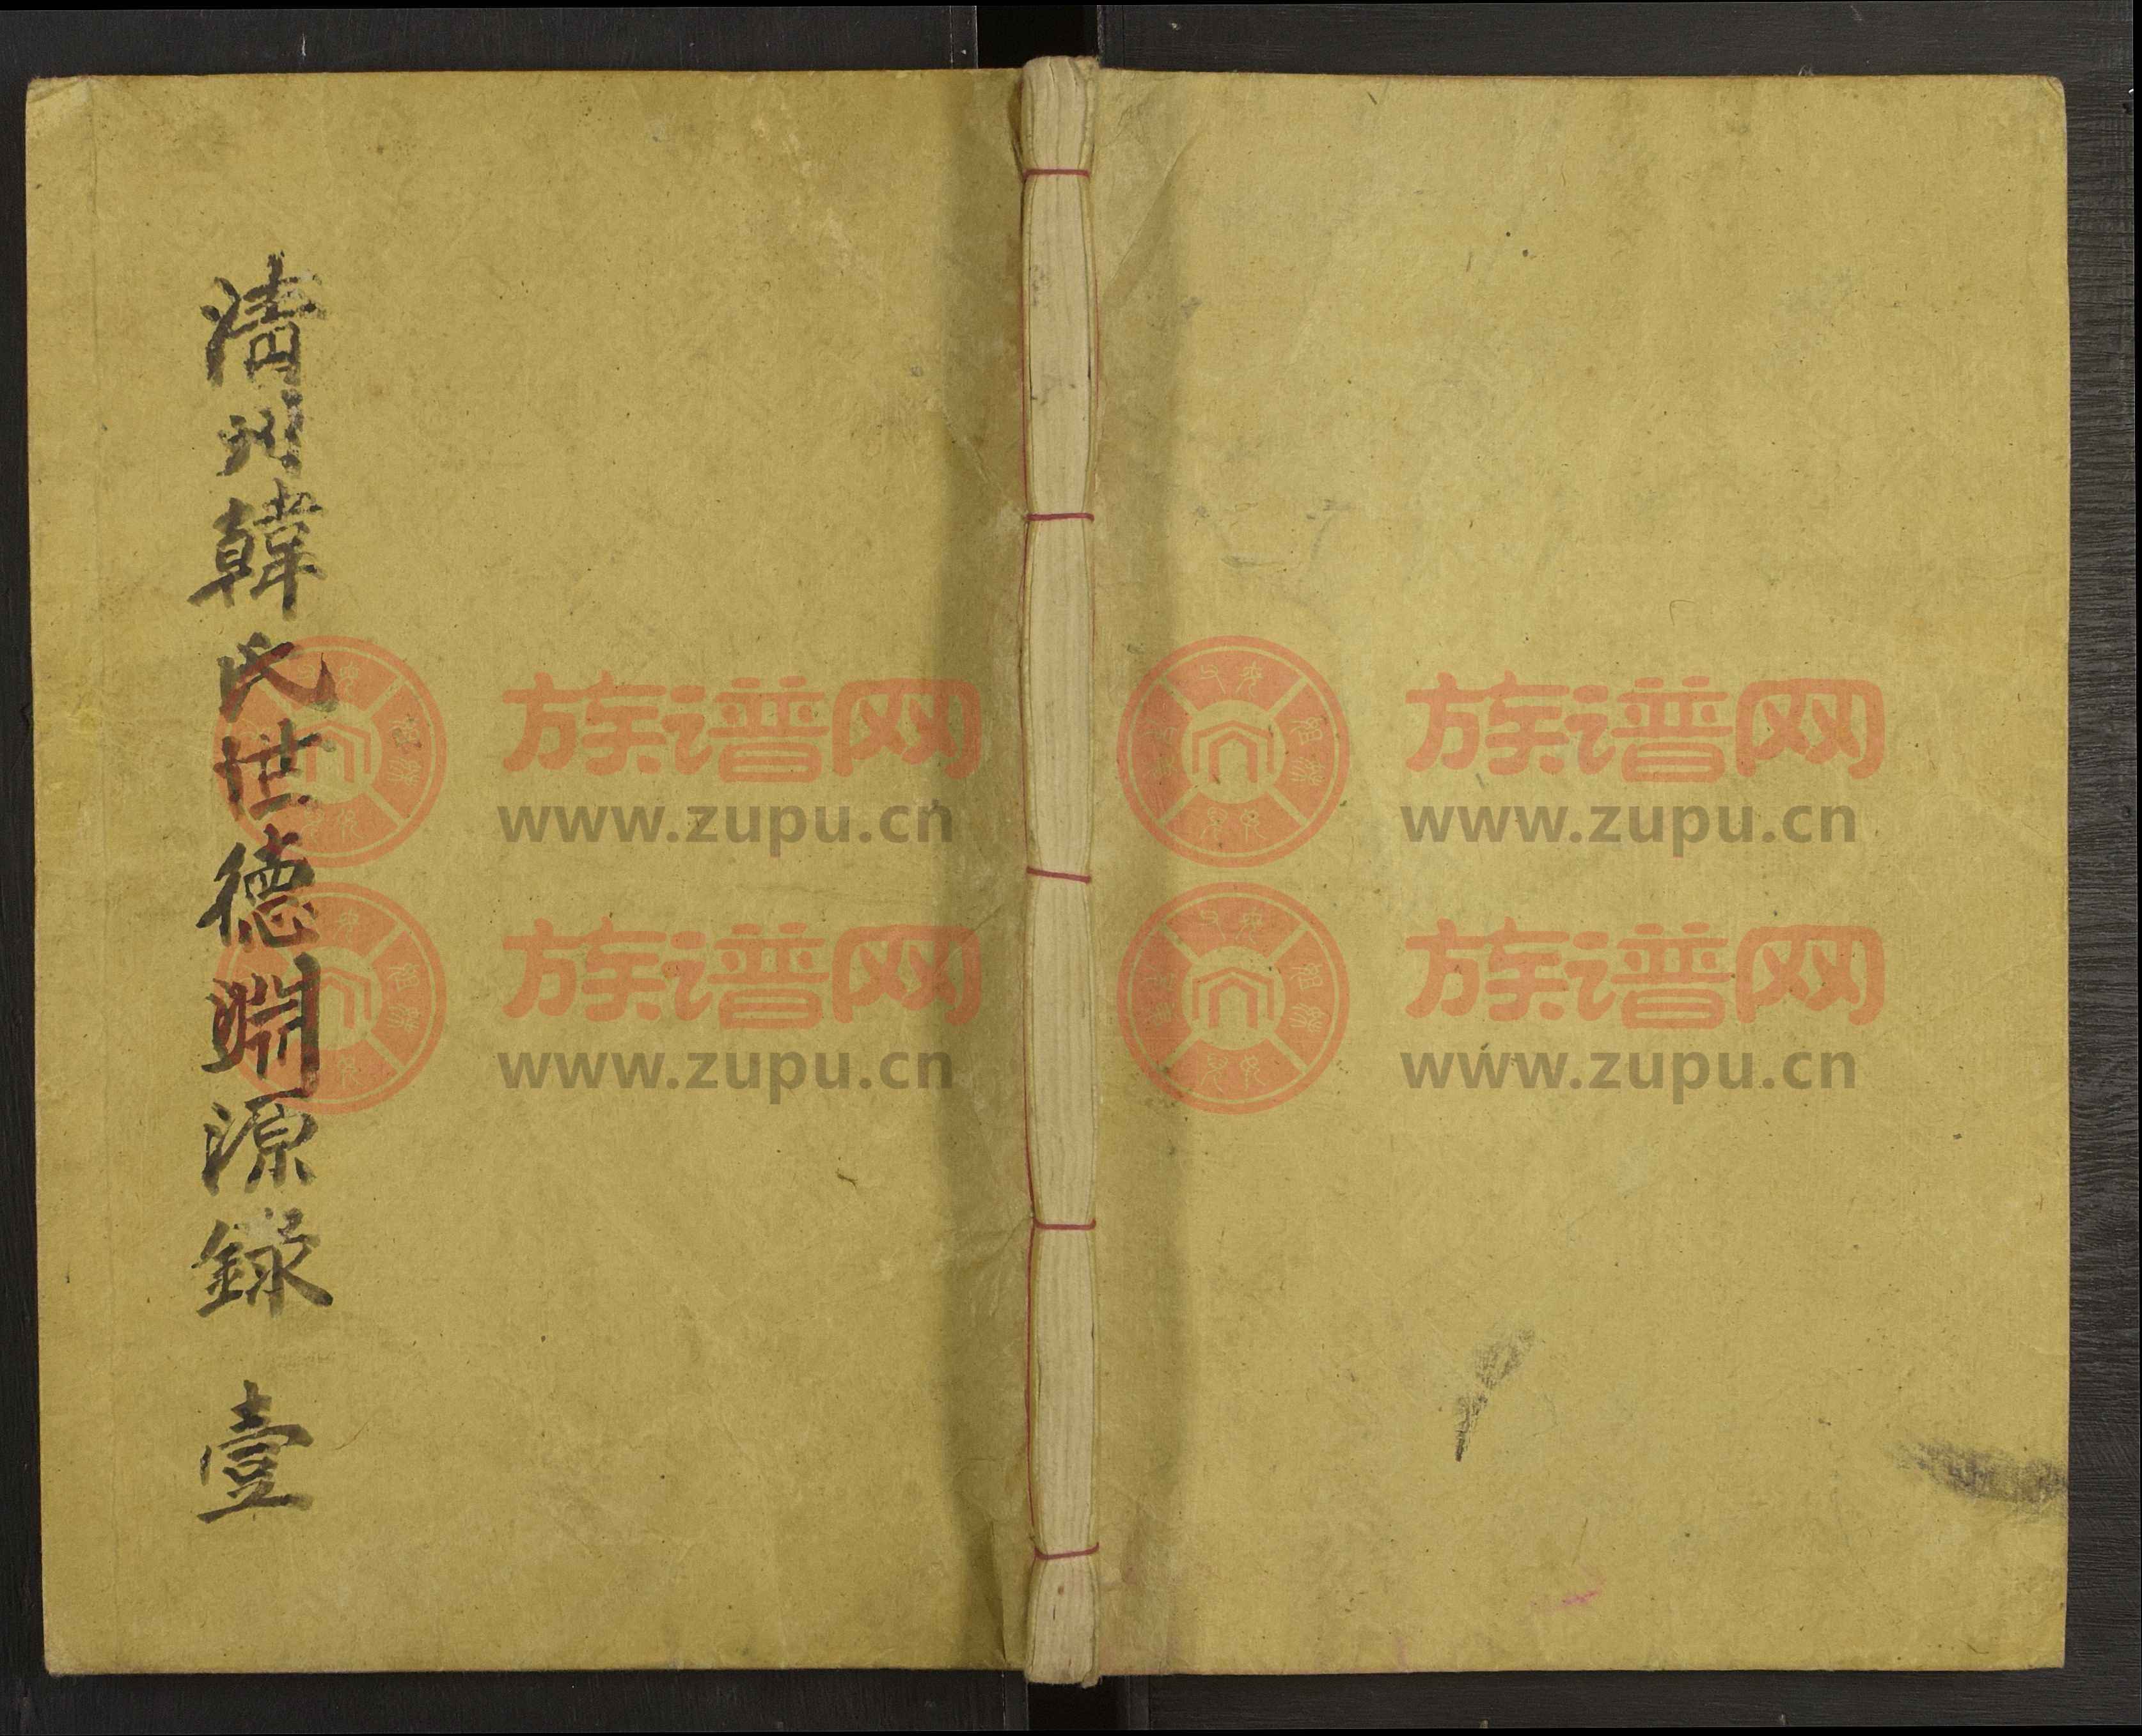 淸州韓氏世德淵源錄 壹
族谱网
www.zupu.cn
族谱网
www.zupu.cn
族谱网
www.zupu.cn
族谱网
www.zupu.cn